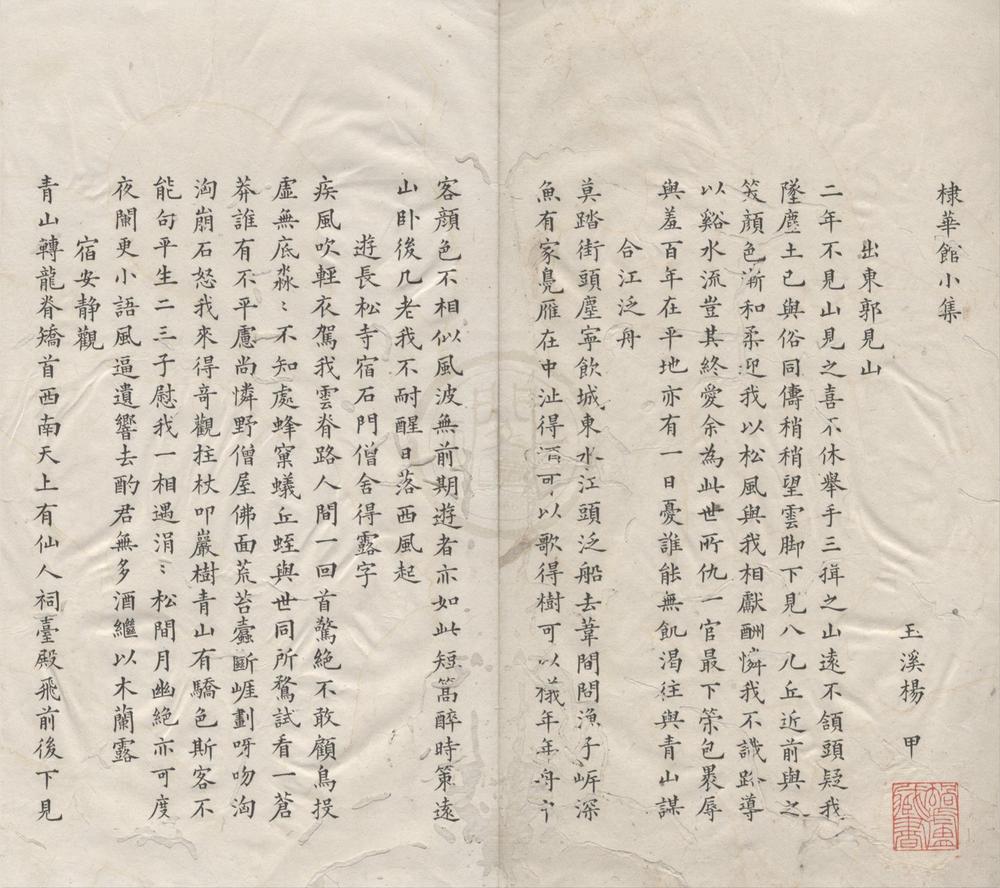 棣華館小集
玉溪楊 甲
出東郭見山
二年不見山見之喜不休舉手三揖之山遠不頷頭疑我
墜塵土已與俗同儔稍稍望雲脚下見八九丘近前與之
笑顏色漸和柔迎我以松風與我相獻酬憐我不識路導
以谿水流豈其終愛余為此世所仇一官最下策包褁辱
與羞百年在平地亦有一日憂誰能無飢渴往與青山謀
合江泛舟
莫踏街頭塵寧飲城東水江頭泛船去葦間問漁子㟁深
魚有家鳧雁在中沚得酒可以歌得樹可以檥年年舟中
客顏色不相似風波無前期遊者亦如此短篙醉時策遠
山卧後几老我不耐醒日落西風起
遊長松寺宿石門僧舍得露字
疾風吹輕衣駕我雲脊路人間一回首驚絕不敢顧鳥投
虛無底淼〻不知處蜂窠蟻丘蛭與世同所騖試看一蒼
莽誰有不平慮尚憐野僧屋佛面荒苔蠹斷崖劃呀吻洶
洶崩石怒我來得奇觀拄杖叩巖樹青山有驕色斯客不
能句平生二三子慰我一相遇涓〻松間月幽絕亦可度
夜闌更小語風逼遺響去酌君無多酒繼以木蘭露
宿安静觀
青山轉龍脊矯首西南天上有仙人祠臺殿飛前後下見